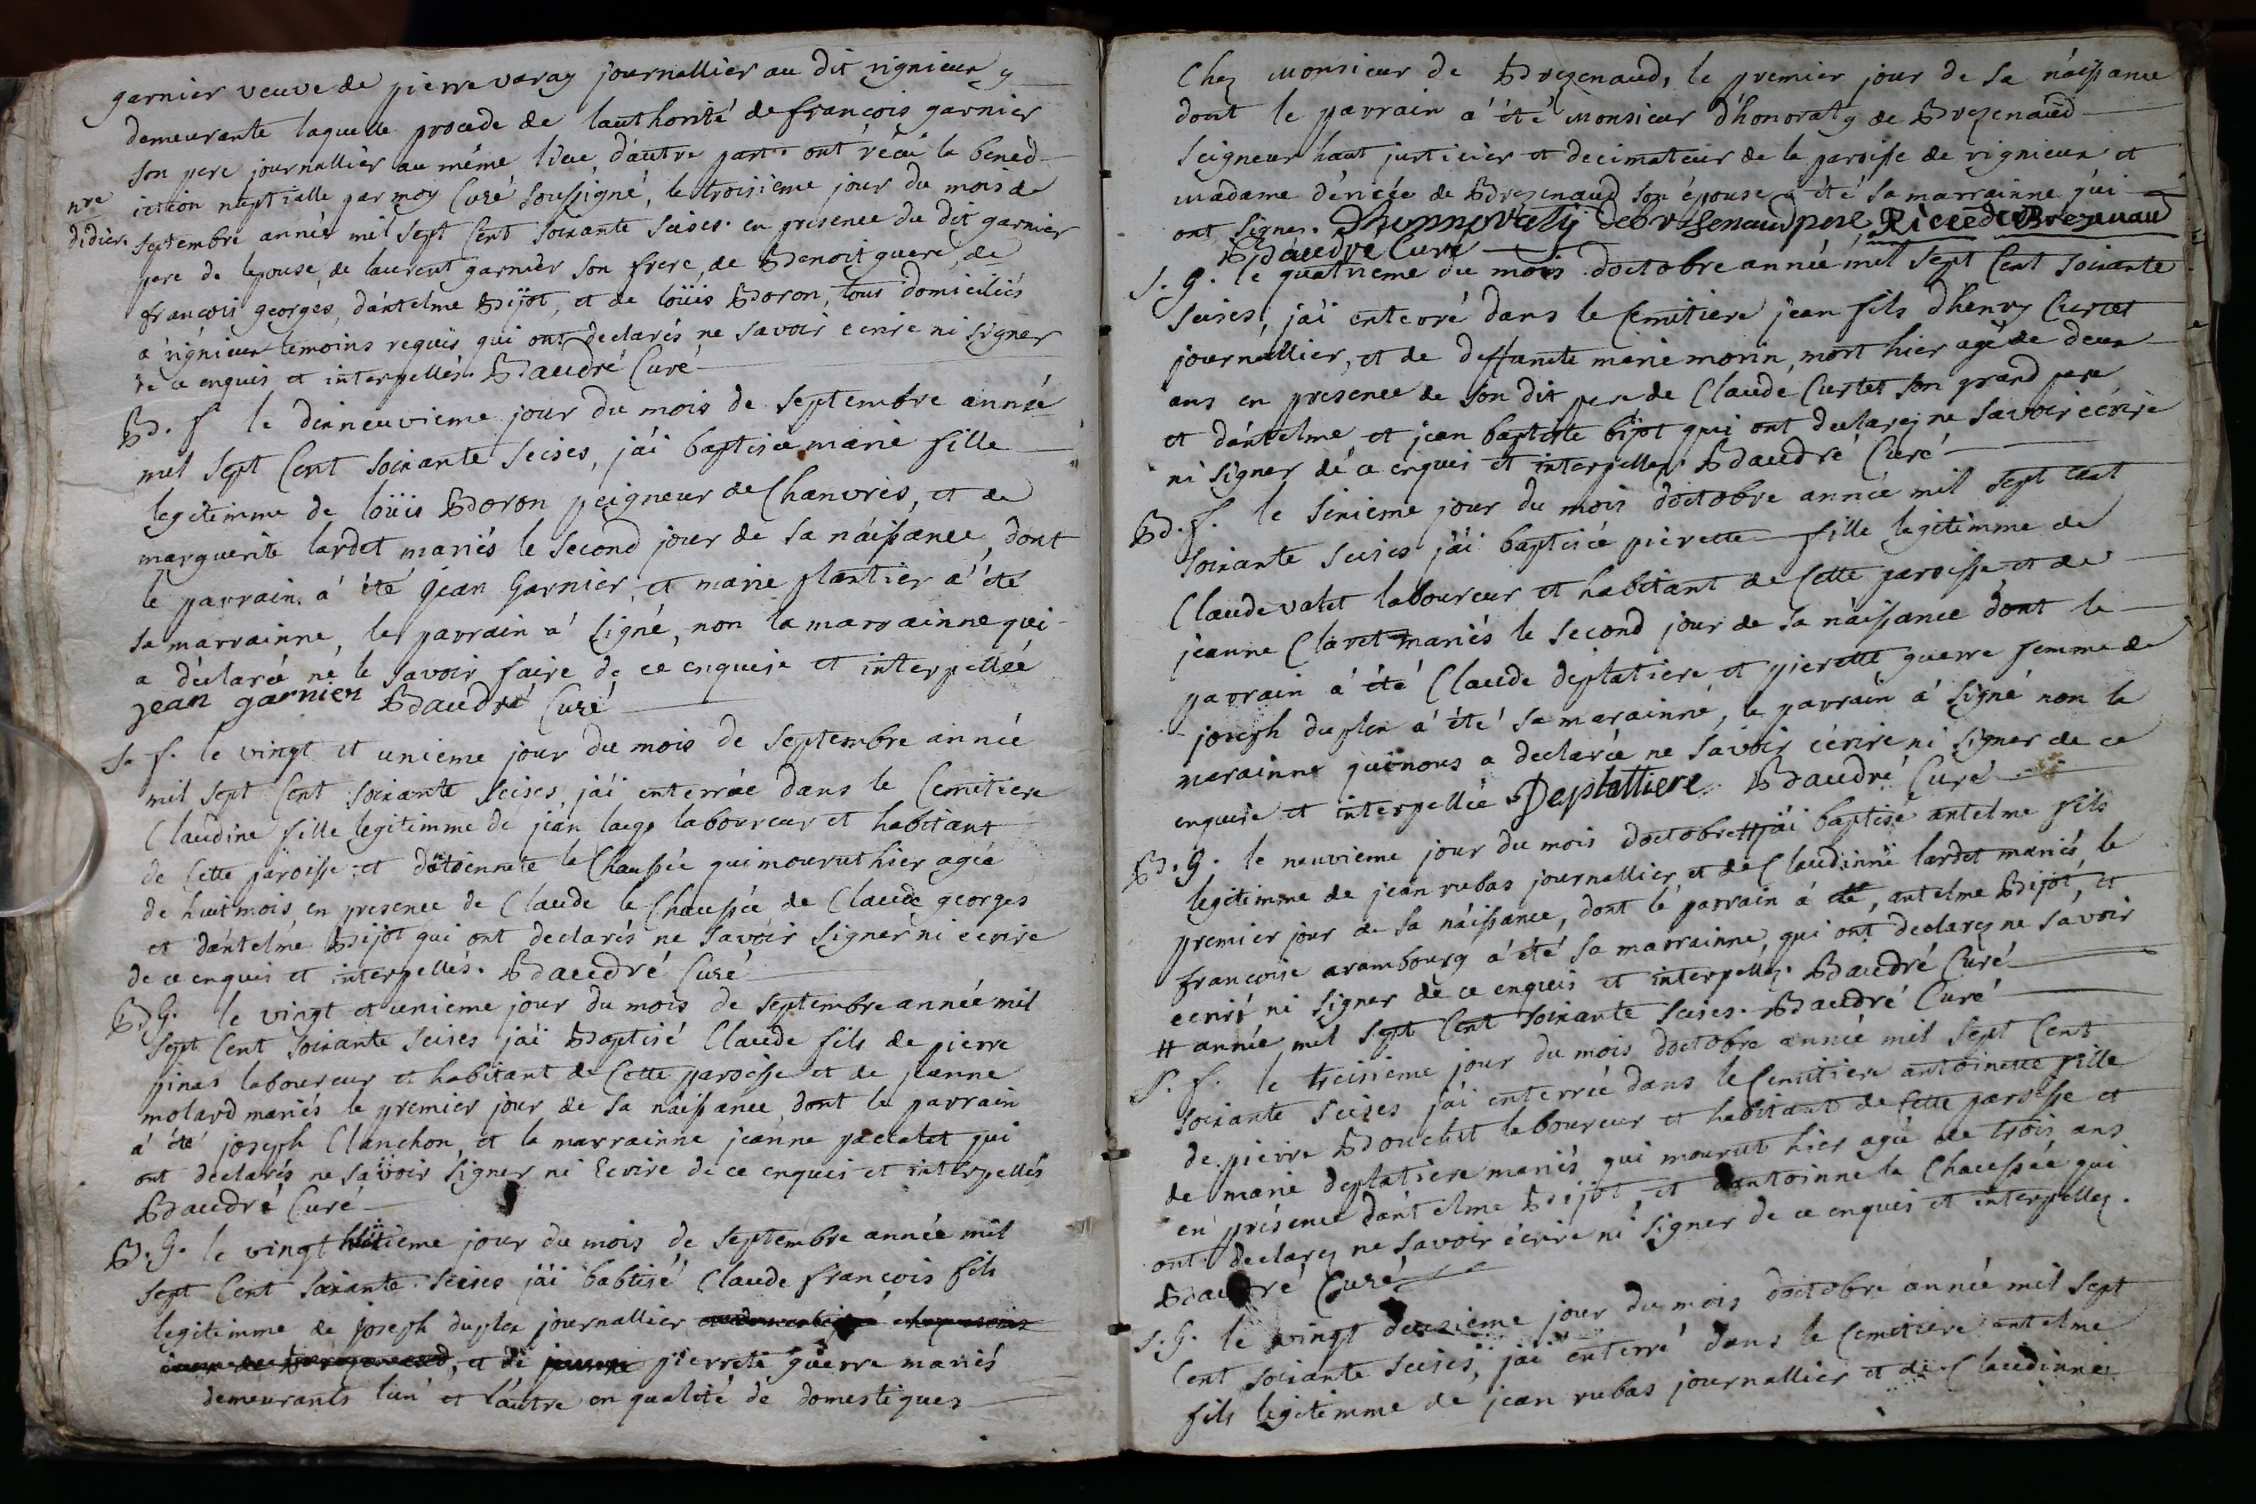 garnier veuve de pierre varay journallier au dit rignieux y
demeurante laquelle procede de lauthorité de françois garnier
son pere journallier au même lieu d'autre part ont réçu la bened
nre iction nuptialle par moy Curé soussigné, le troisieme jour du mois de
didier. septembre année mil sept Cent soixante seises. en presence du dit garnier
pere de lepouse, de laurent garnier son frere, de Benoit guere, de
françois georges, d'antelme Bijot, et de loüis Boron, tous domiciliés
a rignieux temoins requis qui ont declarés ne savoir ecrire ni signer
de ce enquis et interpellés. Baudré Curé
B. f. le dixneuvieme jour du mois de septembre année
mil sept Cent soixante seises, j'ai baptisée marie fille
legitimme de loüis Boron peigneur de Chanvres, et de
marguerite lardet mariés le second jour de sa náissance, dont
le parrain a été jean Garnier, et marie plantier a été
sa marrainne, le parrain a signé, non la marrainne qui
a déclaré ne le savoir faire de ce enquise et interpellée
jean garnier Baudré Curé
S. f. le vingt et unieme jour du mois de septembre année
mil sept Cent soixante seises, j'ai enterrée dans le Cemitiere
Claudine fille legitimme de jean large laboureur et habitant
de Cette paroisse, et d'antoinnete le Chaussée qui mourut hier agée
de huit mois, en presence de Claude le Chaussée de Claude georges
et d'antelme Bijot qui ont declarés ne savoir signer ni ecrire
de ce enquis et interpellés. Baudré Curé
B. G. le vingt et unieme jour du mois de septembre année mil
sept Cent soixante seises j'ai Baptisé Claude fils de pierre
pinas laboureur et habitant de Cette paroisse et de jeanne
molard mariés le premier jour de sa náissance, dont le parrain
a été joseph Clanchon, et la marrainne jeanne paclatet qui
ont declarés ne savoir signer ni Ecrire de ce enquis et interpellés
Baudré Curé
B. G. le vingt huitieme jour du mois de septembre année mil
sept Cent soixante seises j'ai babtisé Claude françois fils
legitimme de joseph duplex journallier
et de pierrete guerre mariés
demeurants l'un et l'autre en qualité de domestiques
Chez Monsieur de Brezenaud, le premier jour de sa náissance
dont le parrain a été Monsieur d'honoraty de Brezenaud
seigneur haut justicier et decimateur de la paroisse de rignieux et
madame déricée de Brezenaud son épouse a été sa marrainne qui
ont signer. Dhonnoraty de Bressenaud pere Ricee de Brezenaud
Baudré Curé
S. G. le quatrieme du mois doctobre année mil sept Cent soixante
seises, j'ai enterré dans le Cemitiere jean fils dhenry Curtet
journallier, et de deffunte marie morin, mort hier agé de deux
ans en presence de son dit pere de Claude Curtet son grand pere
et d'antelme et jean baptiste bijot qui ont declarez ne savoir écrire
ni signer de ce enquis et interpellez. Baudré Curé
B. f. le sixieme jour du mois doctobre année mil sept cent
soixante seises j'ai baptisée pierette fille legitimme de
Claude valet laboureur et habitant de Cette paroisse et de
jeanne Claret mariés le second jour de sa náissance dont le
parrain a été Claude deplatiere et pierette guerre femme de
joseph duplex a été sa marainne, le parrain a signé non la
marainne qui nous a declarée ne savoir écrire ni signer de ce
enquise et interpellée. Deplattiere. Baudré Curé
B. G. le neuvieme jour du mois doctobre # j'ai baptisé antelme fils
legitimme de jean rubas journallier et de Claudinne lardet mariés, le
premier jour de sa náissance, dont le parrain a été, antelme Bijot, et
françoise arambourg a été sa marrainne, qui ont declarez ne savoir
ecrire ni signer de ce enquis et interpellez. Baudré Curé
# année mil sept Cent soixante seises. Baudré Curé
S. f. le treisieme jour du mois doctobre année mil sept Cent
soixante seises j'ai enterrée dans le Cemitiere antoinette fille
de pierre Bouchet laboureur et habitant de Cette paroisse et
de marie deplatiere mariés qui mourut hier agée de trois ans
en présence d'antelme Bijot, et d'antoinne le Chaussée qui
ont declarez ne savoir écrire ni signer de ce enquis et interpellez.
Baudré Curé
S. G. le vingt deuxieme jour du mois doctobre année mil sept
Cent soixante seises, j'ai enterré dans le Cemitiere antelme
fils legitimme de jean rubas journallier et de Claudinne